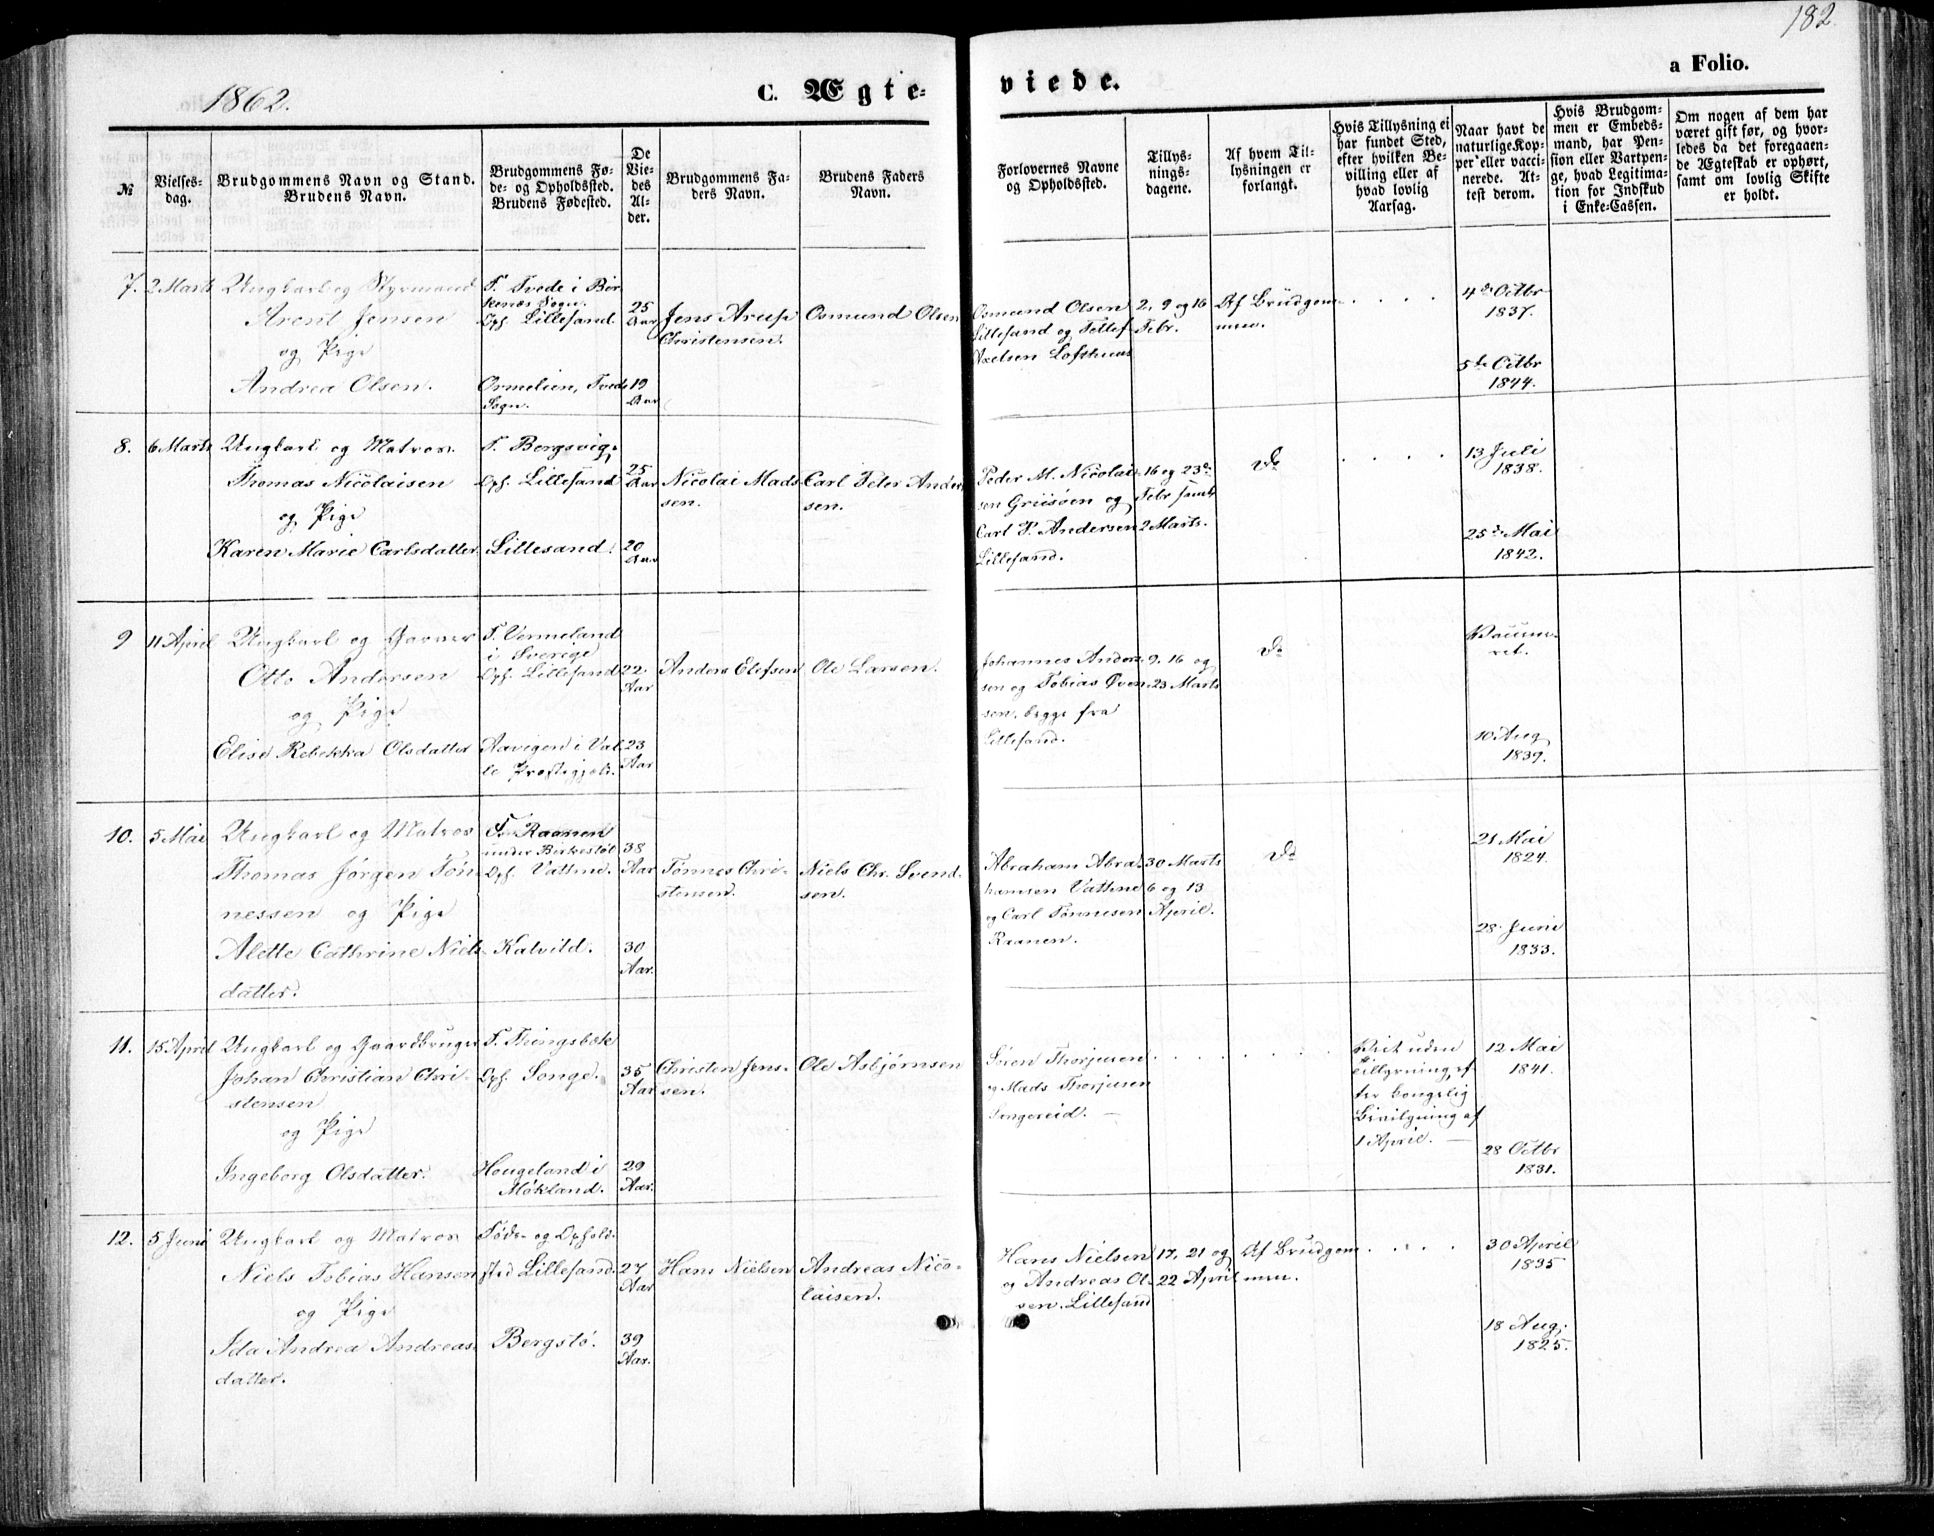 182.
1862.
C. Ægte-
viede.
a Folio.
№
Vielses-
dag.
Brudgommens Navn og Stand.
Brudens Navn.
Brudgommens Fø-
de- og Opholdsted.
Brudens Fødested.
De
Vie-
des
Al-
der.
Brudgommens Fa-
ders Navn.
Brudens Faders
Navn.
Forlovernes Navne
og Opholdsted.
Tillys-
nings-
dagene.
Af hvem Til-
lysningen er
forlangt.
Hvis Tillysning ei
har fundet Sted,
efter hvilken Be-
villing eller af
hvad lovlig
Aarsag.
Naar havt de
naturlige Kop-
per eller vacci-
nerede. At-
test derom.
Hvis Brudgom-
men er Embeds-
mand, har Pen-
sion eller Vartpen-
ge, hvad Legitima-
tion for Indskud
i Enke-Cassen.
Om nogen af dem har
været gift før, og hvor-
ledes da det foregaaen-
de Ægteskab er ophørt,
samt om lovlig Skifte
er holdt.
7.
2 Marts
Ungkarl og Styrmand
Arent Jensen
og Pige
Andrea Olsen.
F. Tvede i Bir-
kenæs Sogn.
Oph. Lillesand.
Ormelien, Tvede
Sogn.
25
Aar
19
Aar
Jens Arup
Christensen.
Osmund Olsen
Osmund Olsen
Lillesand og Tellef
Axelsen Lofthuus
2, 9 og 16
Febr.
Af Brudgom-
men.
4de Octbr
1837.
5te Octbr
1844.
8.
6 Marts
Ungkarl og Matros.
Thomas Nicolaisen
og Pige
Karen Marie Carlsdatter
F. Bergsvig,
Oph. Lillesand
Lillesand.
25
Aar
20
Aar
Nicolai Mads-
sen.
Carl Peter Ander-
sen.
Peder M. Nicolai-
sen Griisøen og
Carl P. Andersen
Lillesand.
16 og 23de
Febr samt
2 Marts.
Do
13 Juli
1838.
25de Mai
1842.
9
11 April
Ungkarl og Garver
Otto Andersen
og Pige
Elise Rebekka Olsdatter
F. Vermeland
i Sverige
Oph. Lillesand
Aavigen i Val-
le Præstegjeld.
22
Aar
23
Aar
Anders Elofsen
Ole Larsen.
Johannes Anders-
sen og Tobias Even-
sen, begge fra
Lillesand.
9, 16 og
23 Marts
Do
Vaccine-
ret.
10 Aug
1839.
10.
5 Mai
Ungkarl og Matros
Thomas Jørgen Tøn-
nessen og Pige
Alette Cathrine Niels-
datter.
F. Raanen
under Birkestøl
Oph. Vattne.
Kalvild.
38
Aar
30
Aar.
Tønnes Chri-
stensen.
Niels Chr. Svend-
sen.
Abraham Abra-
hamsen Vattne
og Carl Tønnesen
Raanen.
30 Marts
6 og 13
April.
Do
21 Mai
1824.
28 Juni
1833.
11.
15 April
Ungkarl og Gaardbruger
Johan Christian Chri-
stensen
og Pige
Ingeborg Olsdatter.
F. Thingsbæk
Oph. Songe.
Hougeland i
Møkland.
35
Aar
29
Aar.
Christen Jens-
sen.
Ole Asbjørnsen
Søren Thorjusen
og Mads Thorjusen
Songereid.
Viet uden
Tillysning, ef-
ter kongelig
Bevilgning af
1 April.
12 Mai
1841.
28 Octbr
1831.
12.
5 Juni
Ungkarl og Matros
Niels Tobias Hansen
og Pige
Ida Andrea Andreas-
datter.
Føde- og Ophold-
sted Lillesand.
Bergstø.
27
Aar
39
Aar.
Hans Nielsen
Andreas Nico-
laisen.
Hans Nielsen
og Andreas Ol-
sen. Lillesand
17, 21 og
22 April
Af Brudgom-
men.
30 April
1835
18 Aug.
1825.